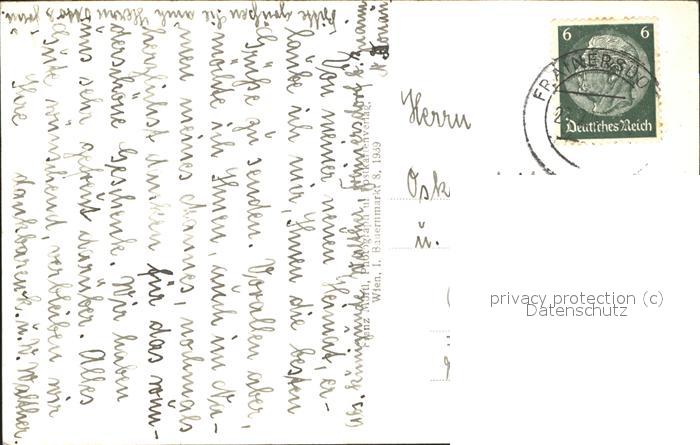 Bitte grüßen Sie auch Herrn Otto u. Frau.
Abs. Kunigunde Walther, Frainersdorf b. Znaim
Von meiner neuen Heimat, er-
laube ich mir, Ihnen die besten
Grüße zu senden. Vorallen aber,
möchte ich Ihnen, auch im Na-
men meines Mannes, nochmals
herzlichst danken für das wun-
derschöne Geschenk. Wir haben
uns sehr gefreut darüber. Alles
Gute wünschend, verbleiben wir
Ihre dankbaren K. u. K. Walther.
Franz Mörtl, Photograph u. Postkartenverlag,
Wien, I. Bauernmarkt 8, 1939
Herrn
Osk
u.
6 6
Deutsches Reich
FRAINERSDO
privacy protection (c)
Datenschutz